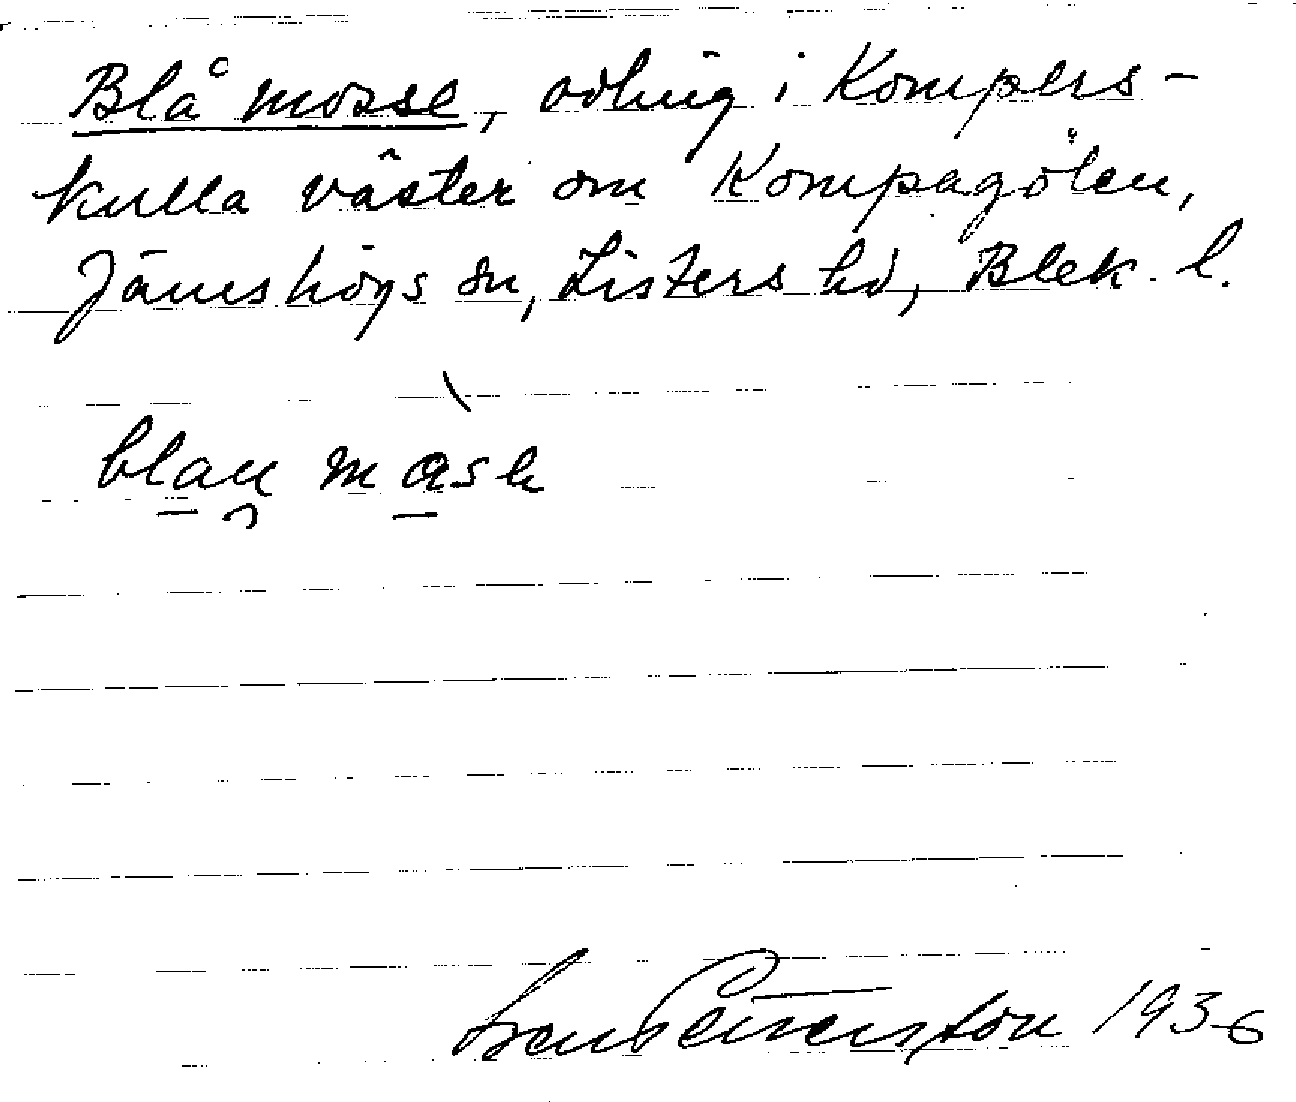 Blå mosse, odling i Kompers-
kulla väster om Kompagölen,
Jämshögs sn, Listers hd, Blek. l.
blau mask
Sven Pettersson 1936